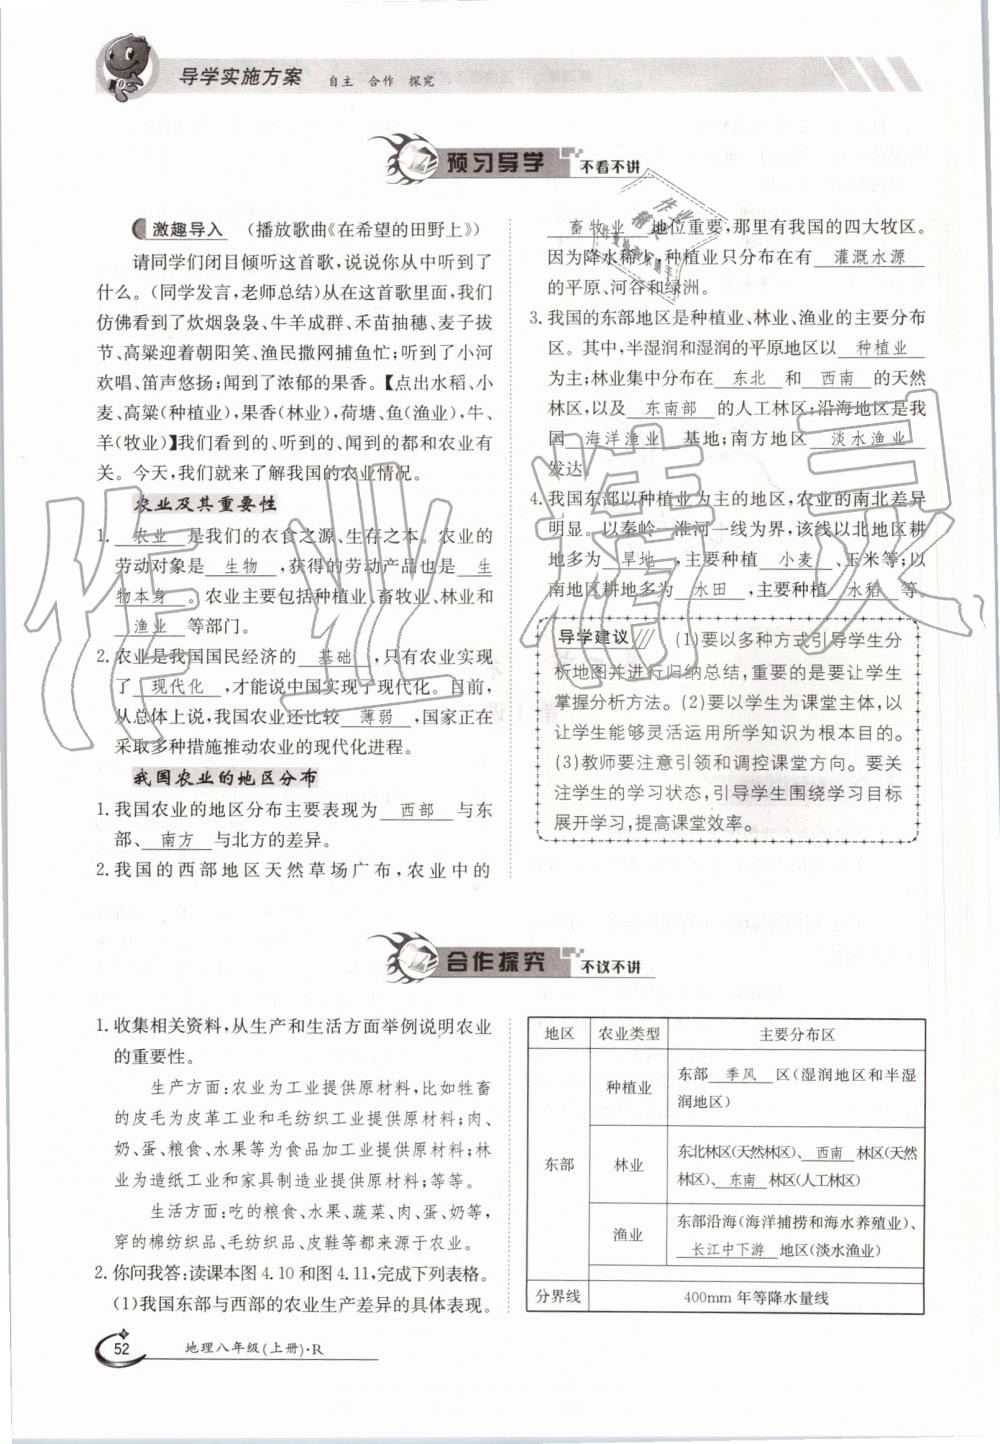 导学实施方案 自主 合作 探究
预习导学 不看不讲
激趣导入 (播放歌曲《在希望的田野上》)
请同学们闭目倾听这首歌,说说你从中听到了
什么。(同学发言,老师总结)从在这首歌里面,我们
仿佛看到了炊烟袅袅、牛羊成群、禾苗抽穗、麦子拔
节、高粱迎着朝阳笑、渔民撒网捕鱼忙;听到了小河
欢唱、笛声悠扬;闻到了浓郁的果香。【点出水稻、小
麦、高粱(种植业),果香(林业),荷塘、鱼(渔业),牛、
羊(牧业)】我们看到的、听到的、闻到的都和农业有
关。今天,我们就来了解我国的农业情况。
农业及其重要性
1. 农业 是我们的衣食之源、生存之本。农业的
劳动对象是 生物 ,获得的劳动产品也是 生
物本身 。农业主要包括种植业、畜牧业、林业和
渔业 等部门。
2. 农业是我国国民经济的 基础 ,只有农业实现
了 现代化 ,才能说中国实现了现代化。目前,
从总体上说,我国农业还比较 薄弱 ,国家正在
采取多种措施推动农业的现代化进程。
我国农业的地区分布
1. 我国农业的地区分布主要表现为 西部 与东
部、 南方 与北方的差异。
2. 我国的西部地区天然草场广布,农业中的
畜牧业 地位重要,那里有我国的四大牧区。
因为降水稀少,种植业只分布在有 灌溉水源
的平原、河谷和绿洲。
3. 我国的东部地区是种植业、林业、渔业的主要分布
区。其中,半湿润和湿润的平原地区以 种植业
为主;林业集中分布在 东北 和 西南 的天然
林区,以及 东南部 的人工林区;沿海地区是我
国 海洋渔业 基地;南方地区 淡水渔业
发达。
4. 我国东部以种植业为主的地区,农业的南北差异
明显。以秦岭—淮河一线为界,该线以北地区耕
地多为 旱地 ,主要种植 小麦 、玉米等;以
南地区耕地多为 水田 ,主要种植 水稻 等。
导学建议 (1)要以多种方式引导学生分
析地图并进行归纳总结,重要的是要让学生
掌握分析方法。(2)要以学生为课堂主体,以
让学生能够灵活运用所学知识为根本目的。
(3)教师要注意引领和调控课堂方向。要关
注学生的学习状态,引导学生围绕学习目标
展开学习,提高课堂效率。
合作探究 不议不讲
1. 收集相关资料,从生产和生活方面举例说明农业
的重要性。
生产方面:农业为工业提供原材料,比如牲畜
的皮毛为皮革工业和毛纺织工业提供原材料;肉、
奶、蛋、粮食、水果等为食品加工提供原材料;林
业为造纸工业和家具制造业提供原材料;等等。
生活方面:吃的粮食、水果、蔬菜、肉、蛋、奶等,
穿的棉纺织品、毛纺织品、皮鞋等都来源于农业。
2. 你问我答:读课本图4.10和图4.11,完成下列表格。
(1)我国东部与西部的农业生产差异的具体表现。
地区 农业类型 主要分布区
东部 种植业 东部 季风 区(湿润地区和半湿
润地区)
林业 东北林区(天然林区)、 西南 林区(天然
林区)、 东南 林区(人工林区)
渔业 东部沿海(海洋捕捞和海水养殖业)、
长江中下游 地区(淡水渔业)
分界线 400mm年等降水量线
52 地理八年级(上册)·R
作业精灵